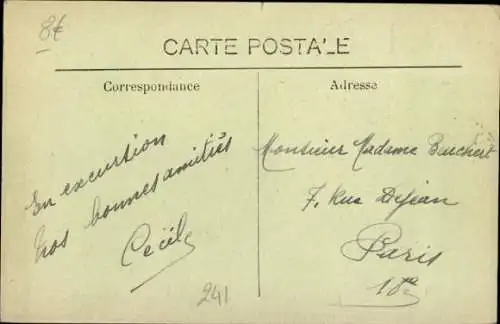 8€
CARTE POSTALE
Correspondance
Adresse
En excursion
Nos bonnes amitiés
Cécile
241
Monsieur Madame
7, Rue Dejean
Paris
18e